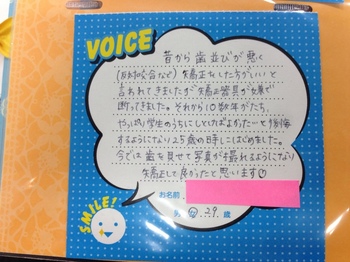 VOICE
昔から歯並びが悪く
(反対咬合など)矯正をした方がいいと
言われてきましたが矯正器具が嫌で
断ってきました。それから10数年がたち、
やっぱり学生のうちにしとけばよかったーと後悔
するようになり25歳の時にはじめました。
今では歯を見せて写真が撮れるようになり
矯正して良かったと思います
お名前
男 女 29 歳
SMILE!